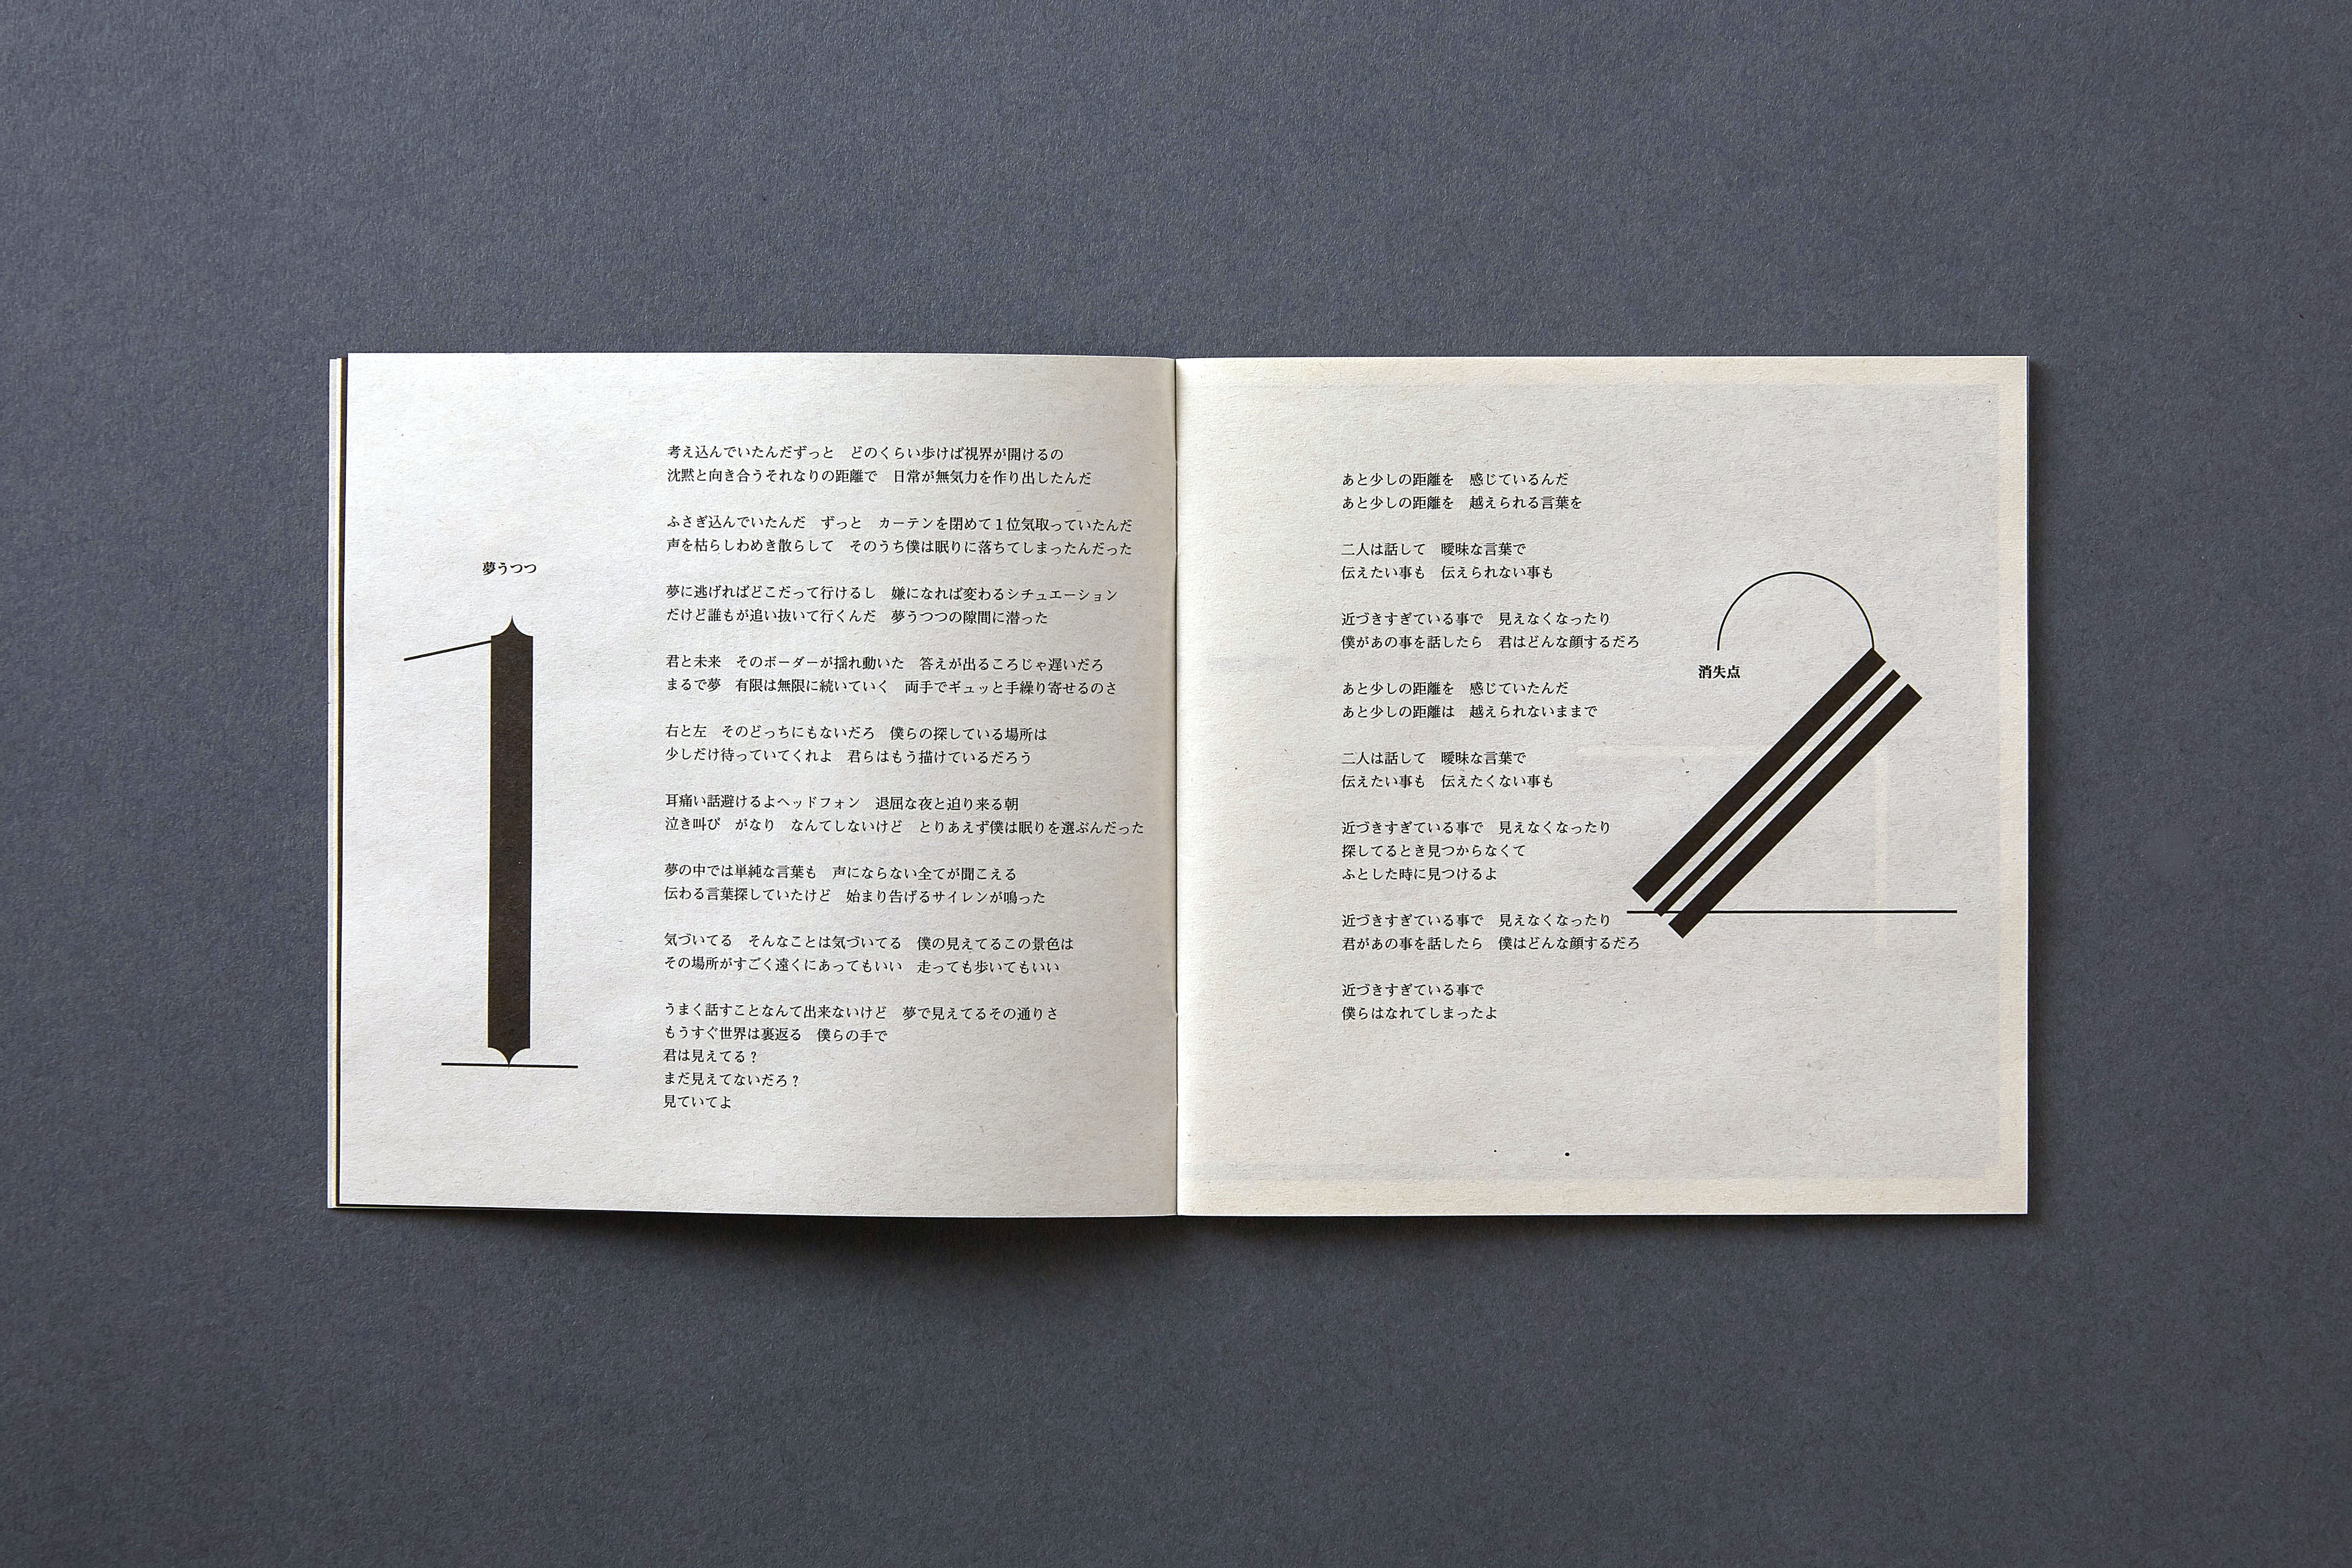 1
夢うつつ
考え込んでいたんだずっと　どのくらい歩けば視界が開けるの
沈黙と向き合うそれなりの距離で　日常が無気力を作り出したんだ
ふさぎ込んでいたんだ　ずっと　カーテンを閉めて１位気取っていたんだ
声を枯らしわめき散らして　そのうち僕は眠りに落ちてしまったんだった
夢に逃げればどこだって行けるし　嫌になれば変わるシチュエーション
だけど誰もが追い抜いて行くんだ　夢うつつの隙間に潜った
君と未来　そのボーダーが揺れ動いた　答えが出るころじゃ遅いだろ
まるで夢　有限は無限に続いていく　両手でギュッと手繰り寄せるのさ
右と左　そのどっちにもないだろ　僕らの探している場所は
少しだけ待っていてくれよ　君らはもう描けているだろう
耳痛い話避けるよヘッドフォン　退屈な夜と迫り来る朝
泣き叫び　がなり　なんてしないけど　とりあえず僕は眠りを選ぶんだった
夢の中では単純な言葉も　声にならない全てが聞こえる
伝わる言葉探していたけど　始まり告げるサイレンが鳴った
気づいてる　そんなことは気づいてる　僕の見えてるこの景色は
その場所がすごく遠くにあってもいい　走っても歩いてもいい
うまく話すことなんて出来ないけど　夢で見えてるその通りさ
もうすぐ世界は裏返る　僕らの手で
君は見えてる？
まだ見えてないだろ？
見ていてよ
2
消失点
あと少しの距離を　感じているんだ
あと少しの距離を　越えられる言葉を
二人は話して　曖昧な言葉で
伝えたい事も　伝えられない事も
近づきすぎている事で　見えなくなったり
僕があの事を話したら　君はどんな顔するだろ
あと少しの距離を　感じていたんだ
あと少しの距離は　越えられないままで
二人は話して　曖昧な言葉で
伝えたい事も　伝えたくない事も
近づきすぎている事で　見えなくなったり
探してるとき見つからなくて
ふとした時に見つけるよ
近づきすぎている事で　見えなくなったり
君があの事を話したら　僕はどんな顔するだろ
近づきすぎている事で
僕らはなれてしまったよ